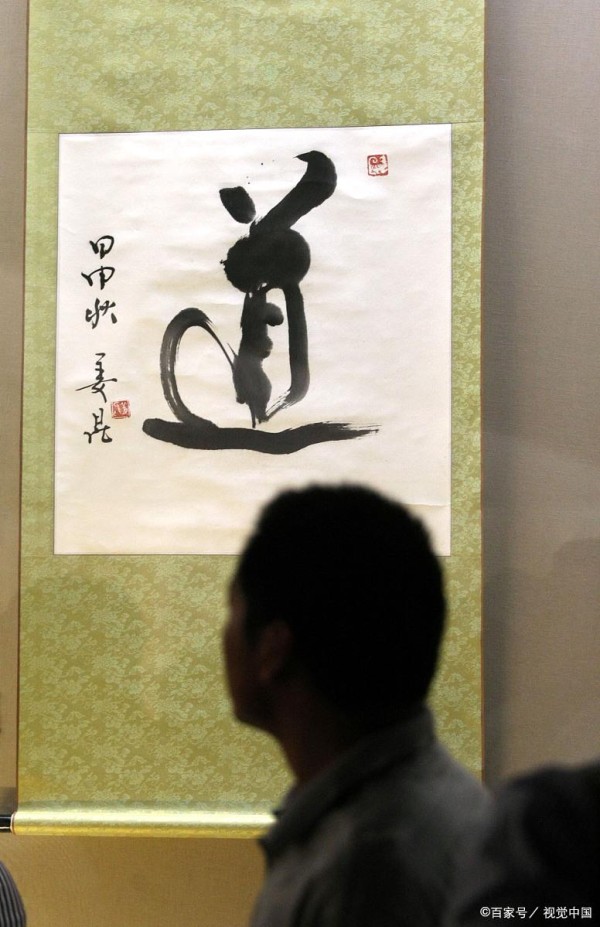 道
甲申秋 姜昆
©百家号／视觉中国